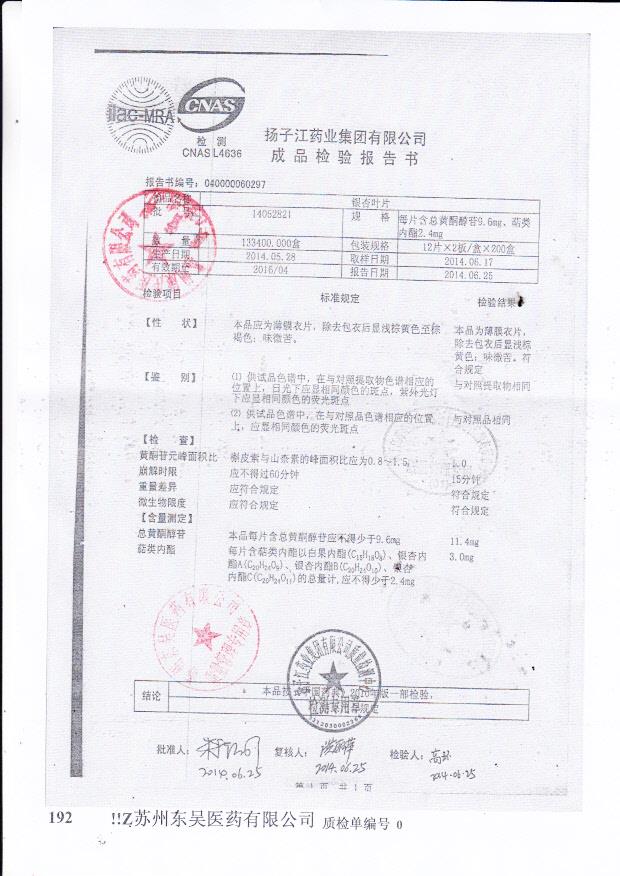 ilac-MRA
CNAS
检 测
CNAS L4636
扬子江药业集团有限公司
成品检验报告书
报告书编号: 040000060297
银杏叶片
批 号 14052821 规 格 每片含总黄酮醇苷9.6mg、萜类
内酯2.4mg
数 量 133400.000盒 包装规格 12片×2板/盒×200盒
生产日期 2014.05.28 取样日期 2014.06.17
有效期至 2016/04 报告日期 2014.06.25
检验项目 标准规定 检验结果
【性 状】 本品应为薄膜衣片，除去包衣后显浅棕黄色至棕
褐色；味微苦。
本品为薄膜衣片，
除去包衣后显浅棕
黄色；味微苦。符
合规定
【鉴 别】 (1) 供试品色谱中，在与对照提取物色谱相应的
位置上，日光下应显相同颜色的斑点，紫外光灯
下应显相同颜色的荧光斑点
与对照提取物相同
(2) 供试品色谱中，在与对照品色谱相应的位置
上，应显相同颜色的荧光斑点
与对照品相同
【检 查】
黄酮苷元峰面积比 槲皮素与山柰素的峰面积比应为0.8～1.5 1.0
崩解时限 应不得过60分钟 15分钟
重量差异 应符合规定 符合规定
微生物限度 应符合规定 符合规定
【含量测定】
总黄酮醇苷 本品每片含总黄酮醇苷应不得少于9.6mg 11.4mg
萜类内酯 每片含萜类内酯以白果内酯(C15H18O8)、银杏内 3.0mg
酯A(C20H24O9)、银杏内酯B(C20H24O10)、银杏
内酯C(C20H24O11)的总量计,应不得少于2.4mg
结论 本品按 中国药典 2010年版一部检验，
规定
检测专用章
批准人： 2014.06.25 复核人： 2014.06.25 检验人： 2014.06.25
第 1 页 共 1 页
192 !!Z苏州东吴医药有限公司 质检单编号 0